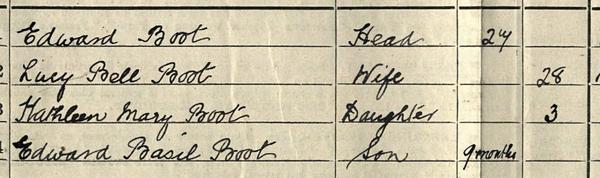 1 Edward Boot Head 24
2 Lucy Bell Boot Wife 28
3 Kathleen Mary Boot Daughter 3
4 Edward Basil Boot Son 9 months